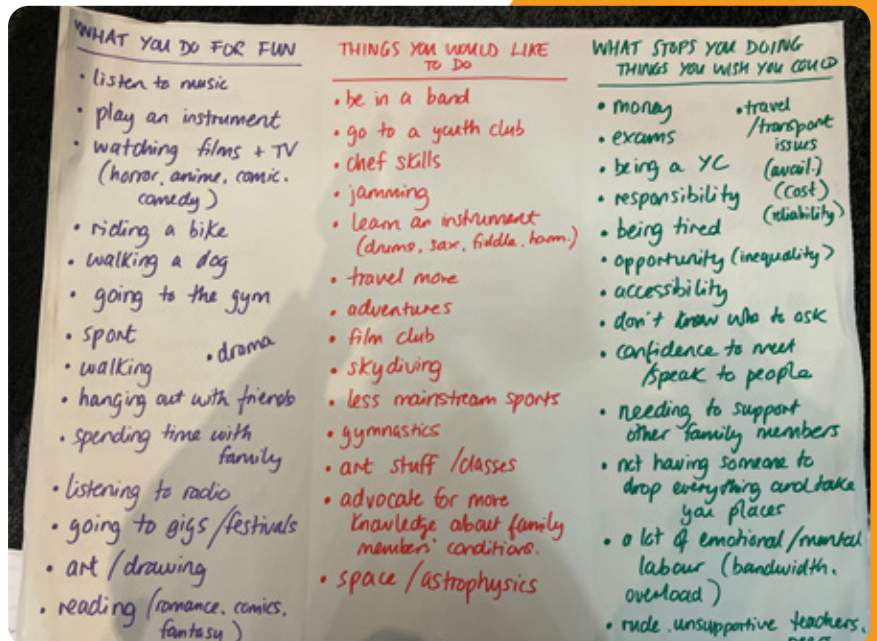 WHAT YOU DO FOR FUN
• listen to music
• play an instrument
• watching films + TV
(horror, anime, comic,
comedy)
• riding a bike
• walking a dog
• going to the gym
• sport
• drama
• walking
• hanging out with friends
• spending time with
family
• listening to radio
• going to gigs/festivals
• art/drawing
• reading (romance, comics,
fantasy)
THINGS YOU WOULD LIKE
TO DO
• be in a band
• go to a youth club
• chef skills
• jamming
• learn an instrument
(drums, sax, fiddle, harm.)
• travel more
• adventures
• film club
• skydiving
• less mainstream sports
• gymnastics
• art stuff/classes
• advocate for more
knowledge about family
members' conditions.
• space/astrophysics
WHAT STOPS YOU DOING
THINGS YOU WISH YOU COULD
• money
• exams
• being a YC
• responsibility
• being tired
• travel
/transport
issues
(avail.)
(cost)
(reliability)
• opportunity (inequality)
• accessibility
• don't know who to ask
• confidence to meet
/speak to people
• needing to support
other family members
• not having someone to
drop everything and take
you places
• a lot of emotional/mental
labour (bandwidth,
overload)
• rude, unsupportive teachers,